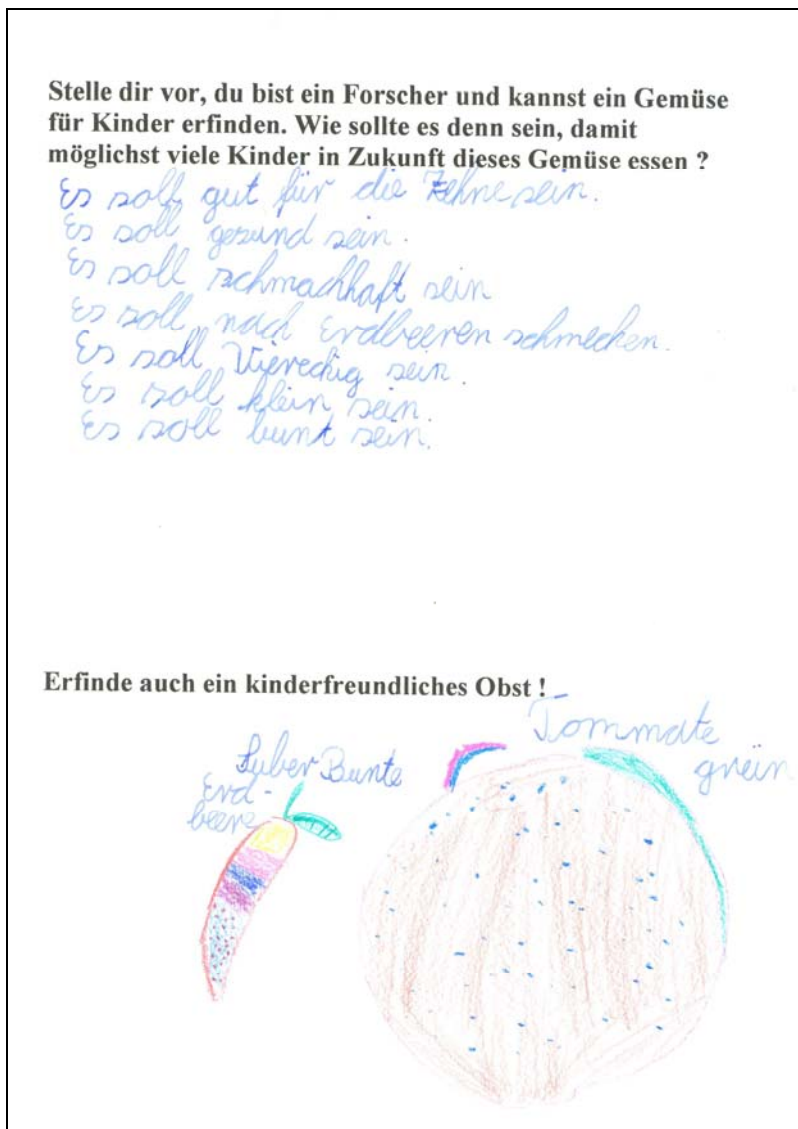 Stelle dir vor, du bist ein Forscher und kannst ein Gemüse
für Kinder erfinden. Wie sollte es denn sein, damit
möglichst viele Kinder in Zukunft dieses Gemüse essen ?
Es soll gut für die Zehne sein.
Es soll gesund sein.
Es soll schmachhaft sein
Es soll nach Erdbeeren schmecken.
Es soll Vierechig sein.
Es soll klein sein.
Es soll bunt sein.
Erfinde auch ein kinderfreundliches Obst !
Suber Bunte
Erd-
beere
Tommate
grün